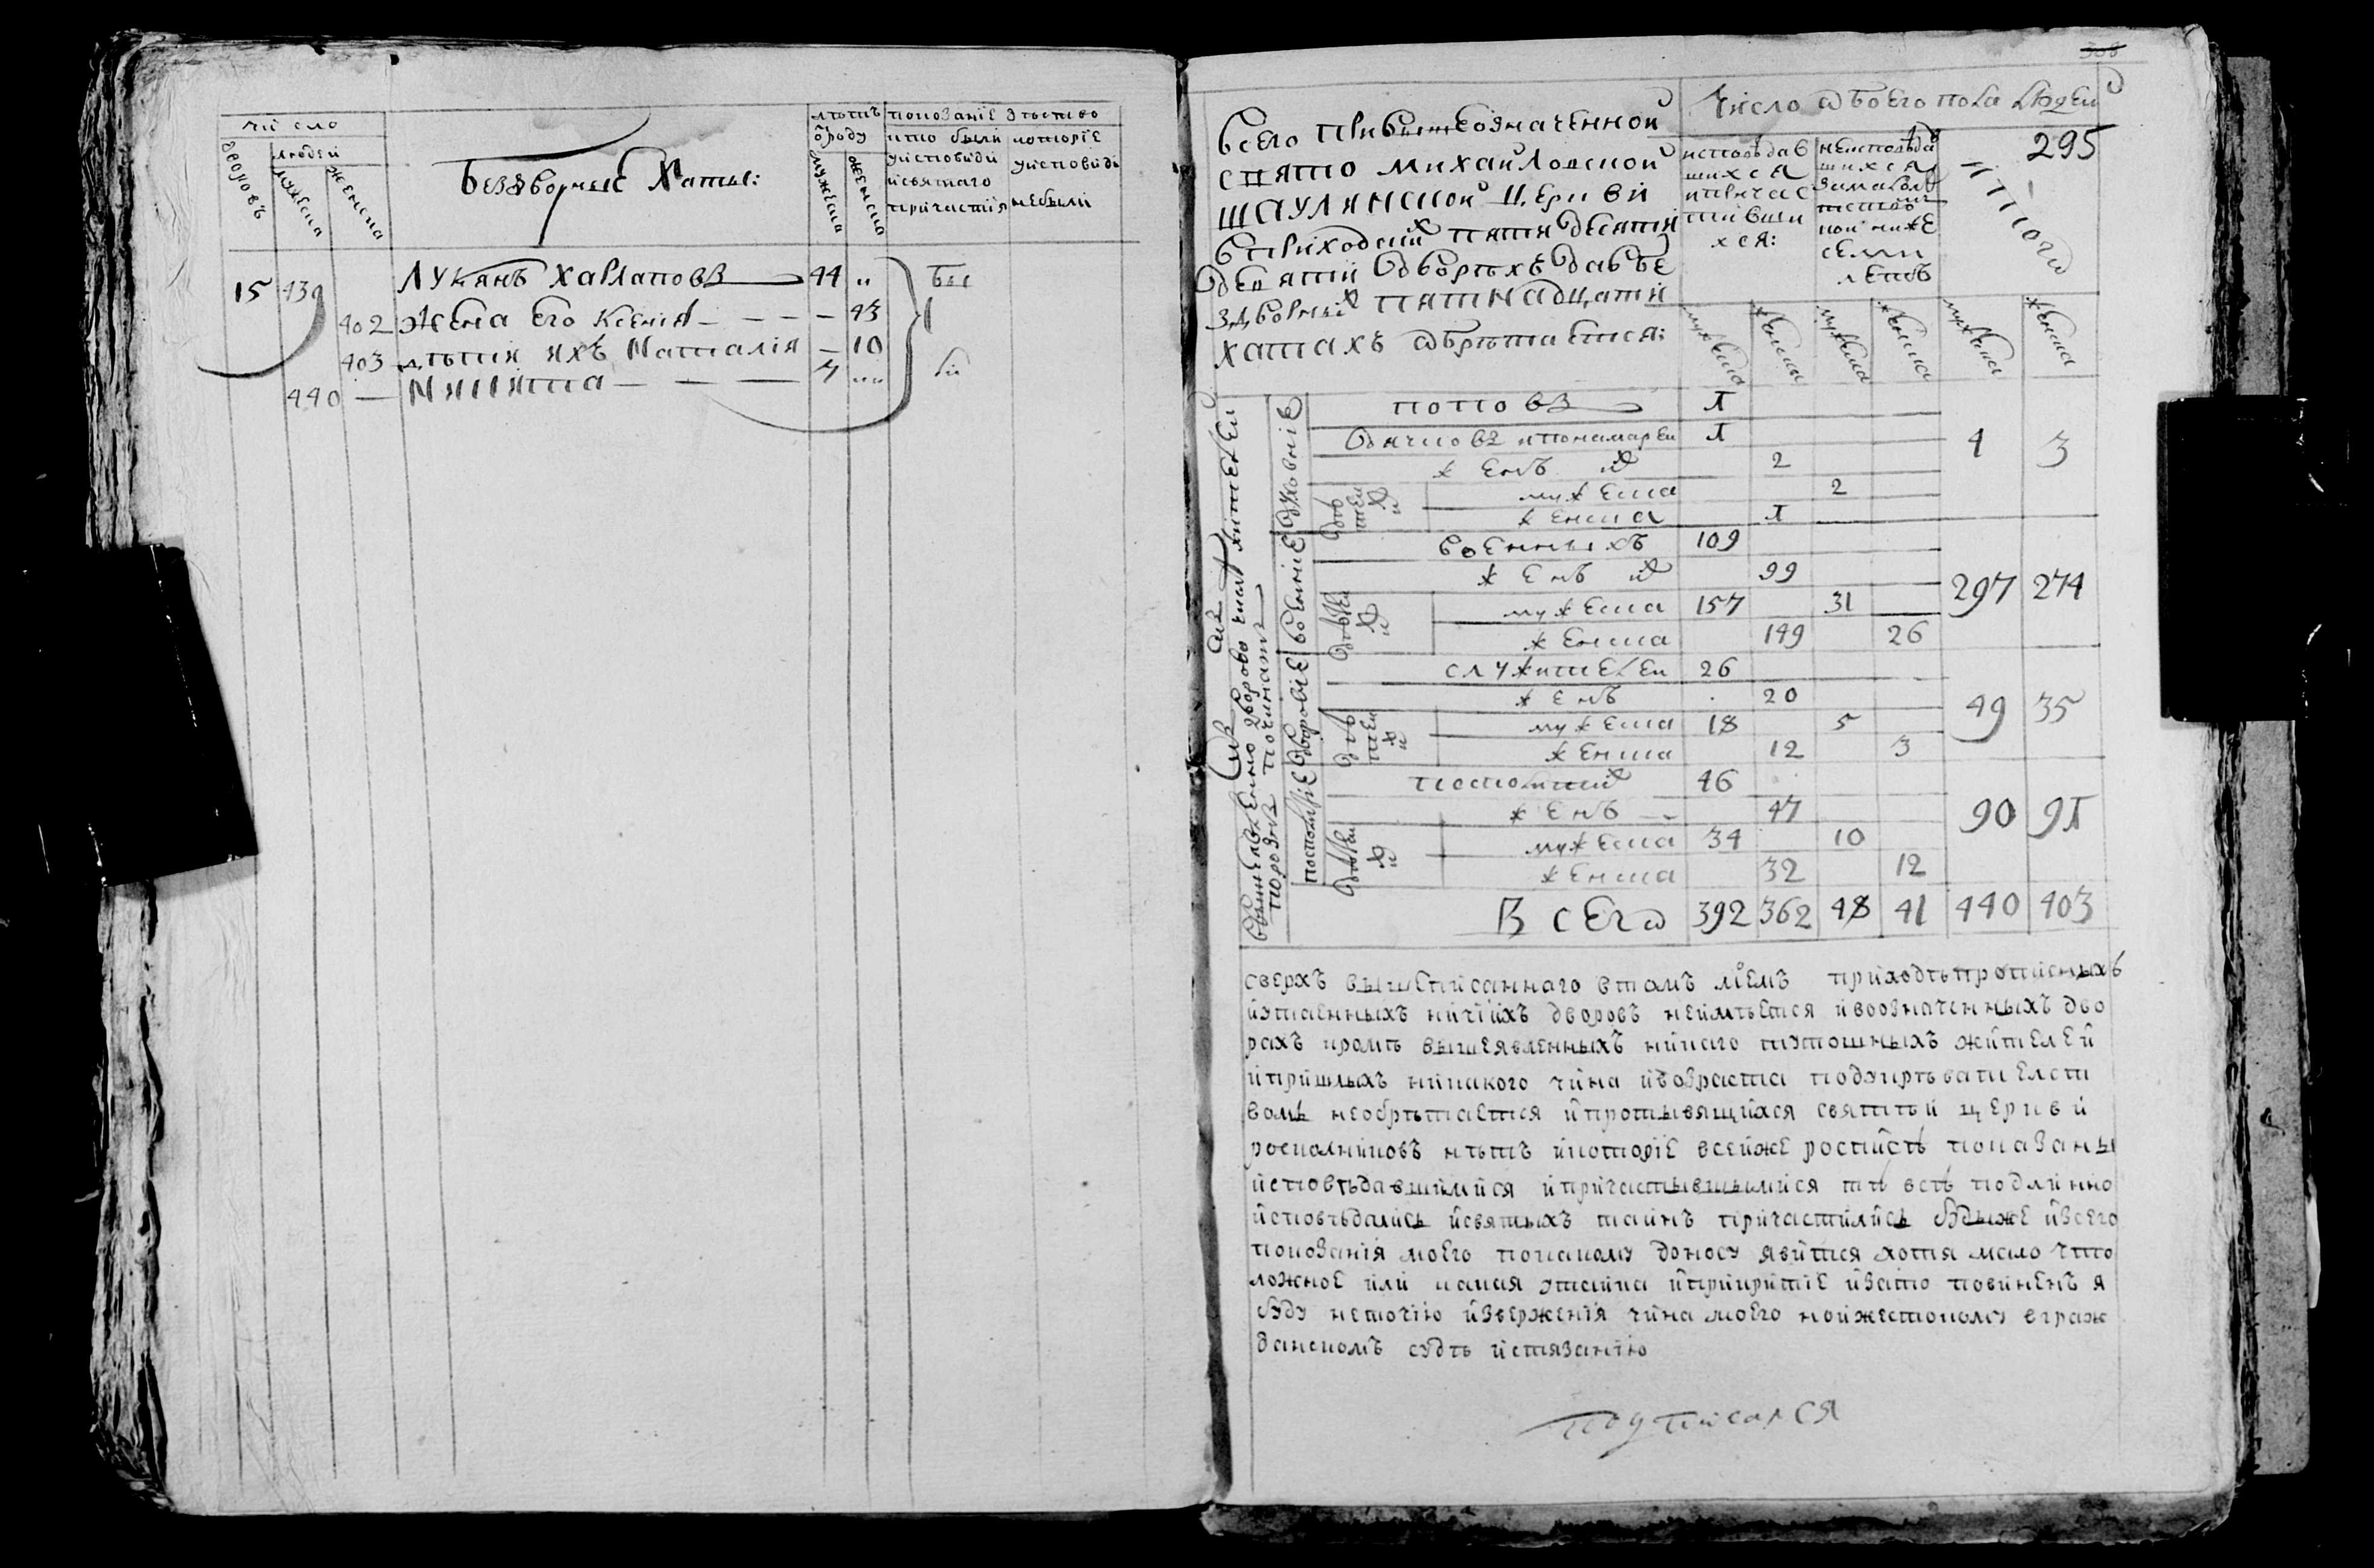 число
дворовъ
людей
мужеска
женска
Бездворные Хаты:
лѣтъ
ѿроду
мужеска
женска
показаніе дѣйство
кто были
уисповѣди
исвятаго
причастія
которіе
уисповѣди
небыли
15 439 Лукянъ Харлаповъ 44 „ бы
402 Жена его Ксенія — 43 л
403 дѣти ихъ Наталія — 10
440 — Никита — 7 „ ли
295
Число ѡбоего пола людей
всего привышеозначенной
свято михайловской
церкви
вприходскихъ пятидесяти
девяти дворѣхъ давбе
здворныхъ пятнадцати
хатахъ ѡбрѣтается:
исповѣдав
шихся
ипричас
тивши
хся:
неисповѣда
вшихся
замалолѣ
тствомъ
пониже
семи
лѣтъ
итого
мужеска женска мужеска женска мужеска женска
духовніе
поповъ 1
дячковъ ипонамарей 1
женъ ихъ 2
дѣтей ихъ
мужеска 2
женска 1
4 3
военніе
военныхъ 109
женъ ихъ 99
дѣтей ихъ
мужеска 157 31
женска 149 26
297 274
дворовіе
служителей 26
женъ 20
дѣтей ихъ
мужеска 18 5
женска 12 3
49 35
посполитіе
посполитихъ 46
женъ — 47
дѣтей ихъ
мужеска 34 10
женска 32 12
90 91
Всегѡ 392 362 48 41 440 403
сверхъ вышеписаннаго втомъ моемъ приходѣ прописныхъ
иутаенныхъ ничіихъ дворовъ неимѣется ивоозначенныхъ дво
рахъ кромѣ вышеявленныхъ никаго тутошныхъ жителей
ипришлыхъ никакого чина ивозраста подукрѣвателст
вомъ необрѣтается ипротывящихся святѣй церкви
росколниковъ нѣтъ икоторіе всейже росписѣ показаны
исповѣдавшимися ипричастывшымися тѣ всѣ подлинно
исповѣдались исвятыхъ таинъ причастились будыже изсего
показанія моего покакому доносу явится хотя мало что
ложное или какая утайка иприкритіе изато повиненъ я
буду неточію изверженія чина моего нойжестокому вграж
данскомъ судѣ истязанію
подписался